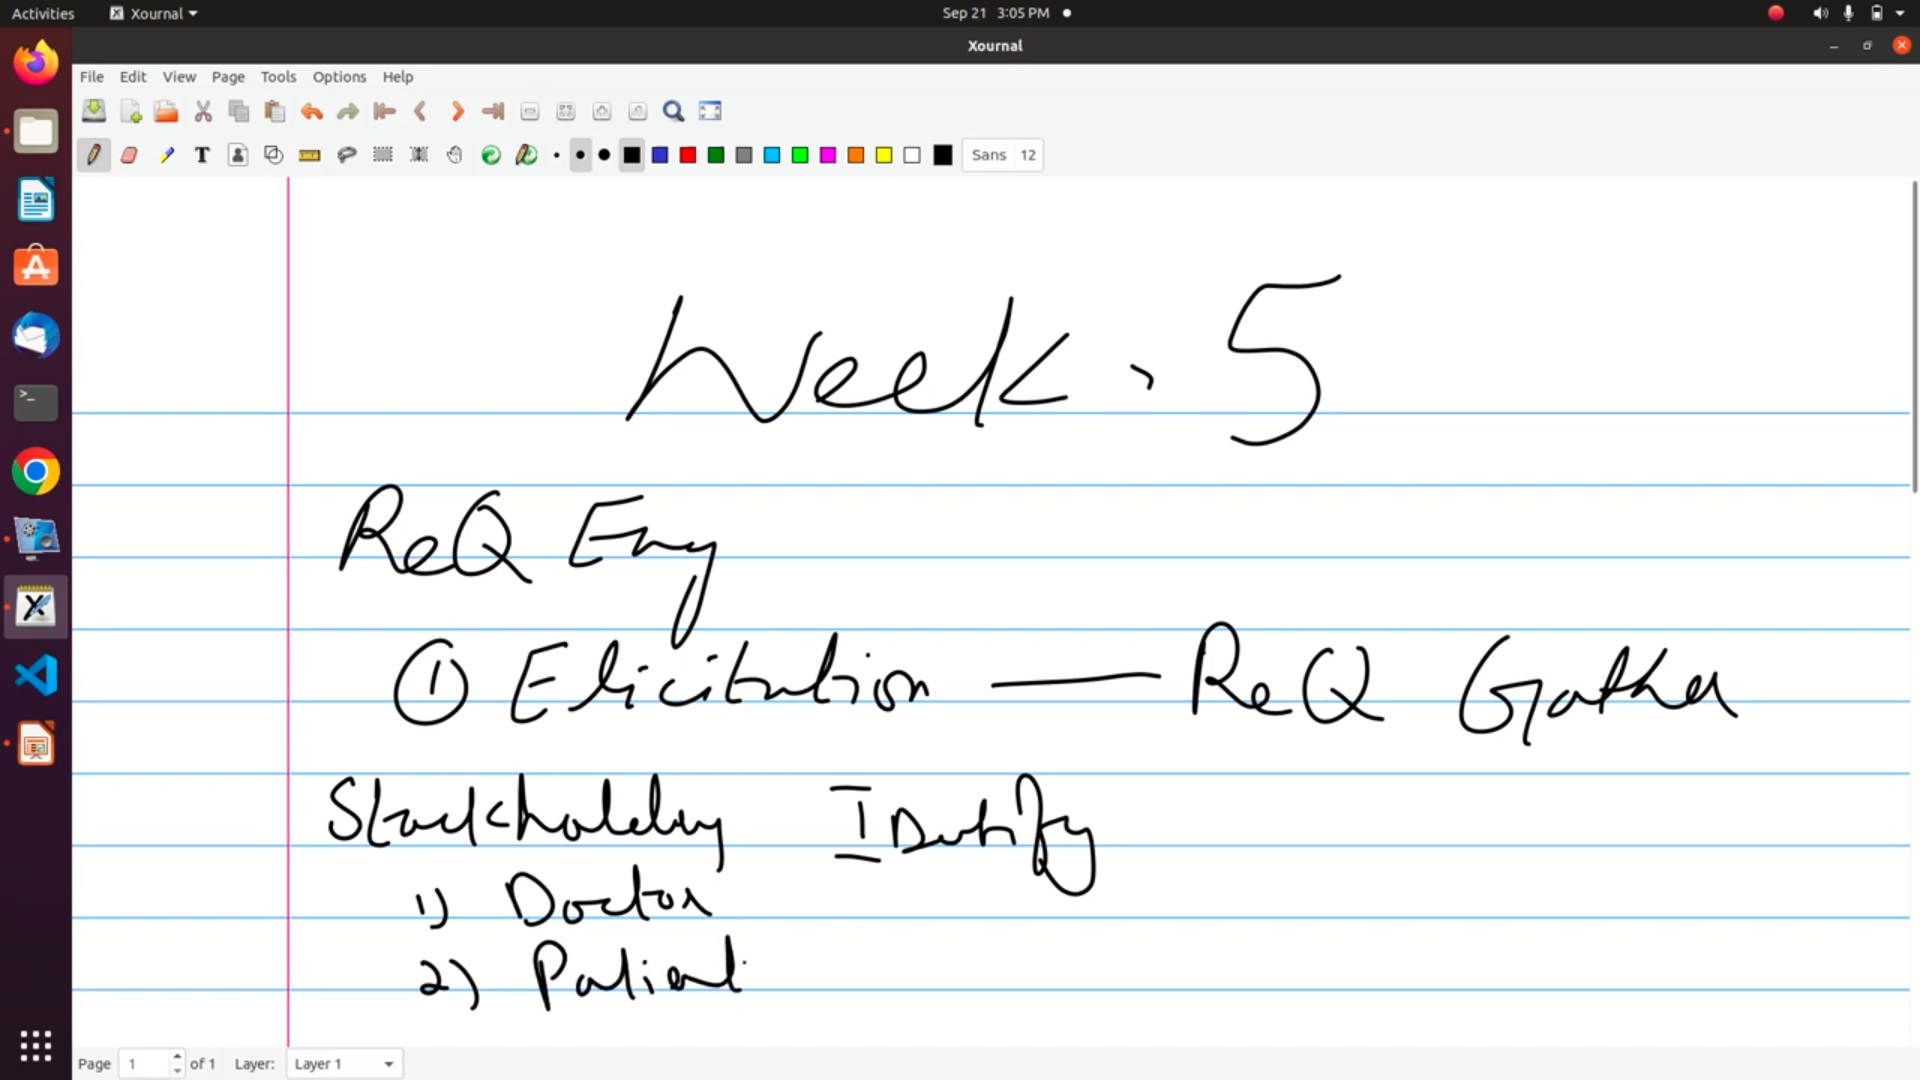 Activities Xournal Sep 21 3:05 PM
Xournal
File Edit View Page Tools Options Help
T Sans 12
Week - 5
ReQ Eng
① Elicitation — ReQ Gather
Stackholders IDentify
1) Doctor
2) Patient
Page 1 of 1 Layer: Layer 1